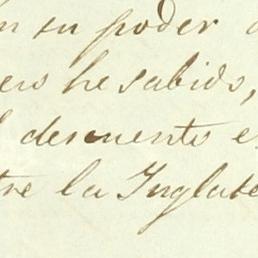 en su poder
ero he sabido,
l descuento e
tre la Inglate